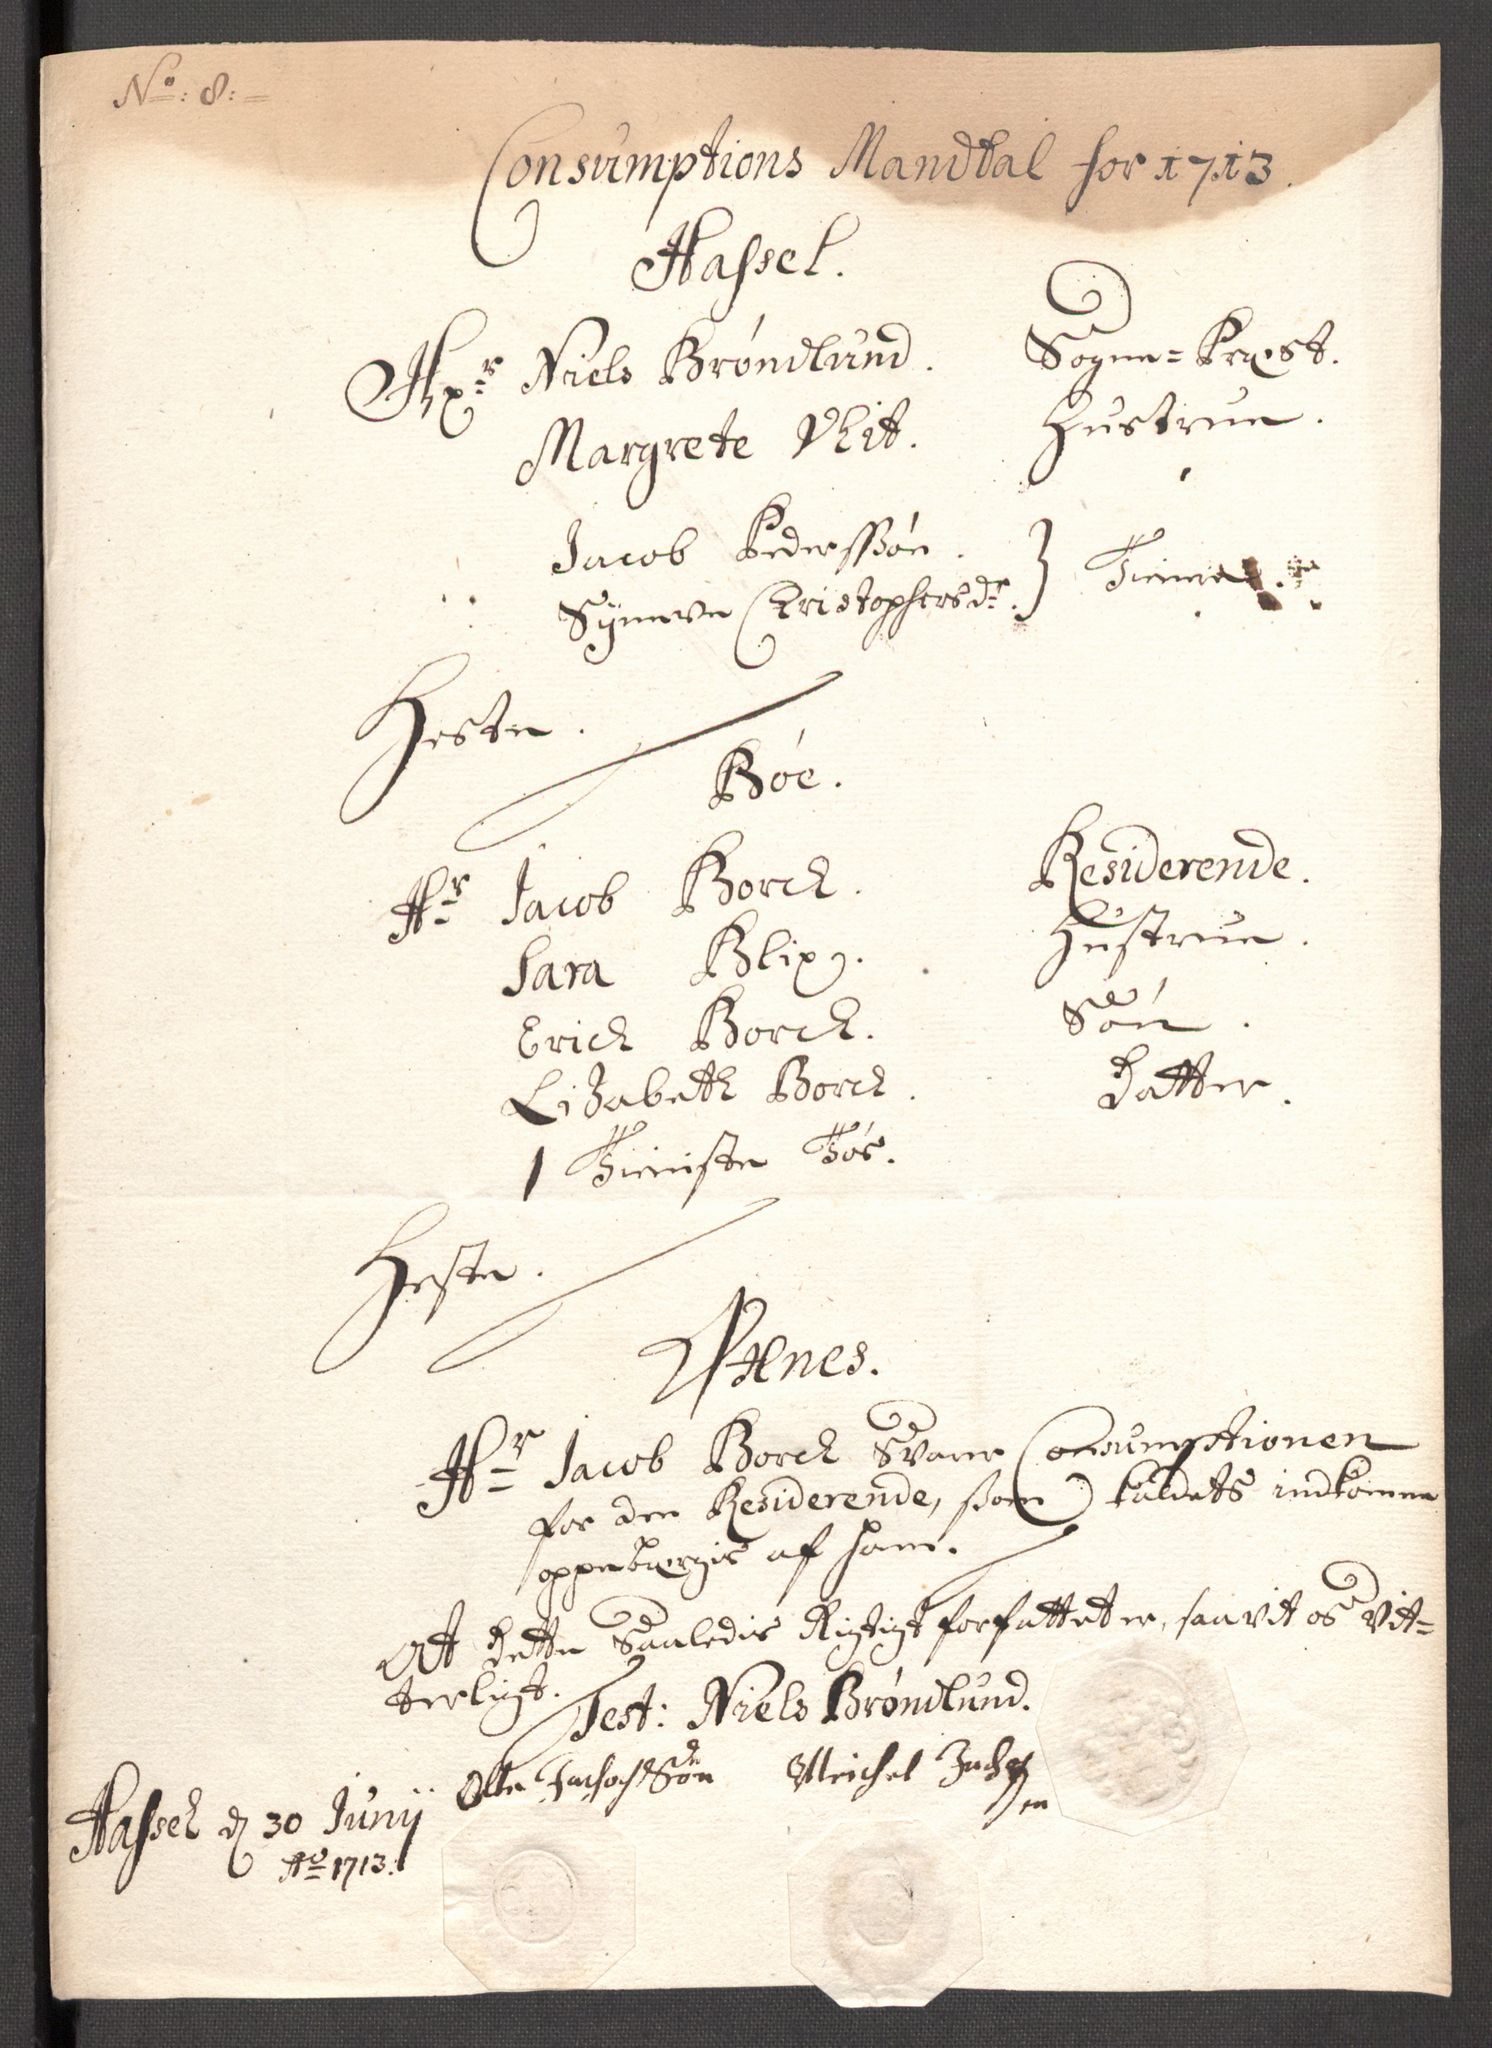 No: 8:
Consumptions Mandtal for 1713.
Hassel.
Hr Niels Brøndlund. Sogne=Præst.
Margrete Vhit. Hustrue.
Jacob Pederssøn.
Synneve Christophersdr. } Tienere
Heste.
Bøe.
Hr Jacob Borch. Residerende.
Sara Blix. Hustrue.
Erich Borch. Søn.
Lizabeth Borch. Datter.
1 Tieniste Tøs.
Heste.
Øxnes.
Hr Jacob Borch Svarer Consumptionen
for den Residerende, som kaldets indkomme
oppebærgis af ham.
At dette Saaledis Rigtigt forfattet er, saavit os vit=
terligt.
Test: Niels Brøndlund.
Olle Meichel
Hassel d 30 Junij
Ao 1713.